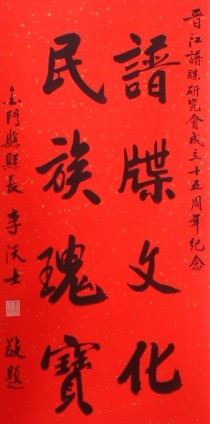 晋江譜牒研究會成立十五周年纪念
譜牒文化
民族瑰寶
金門縣縣長 李沃士 敬題